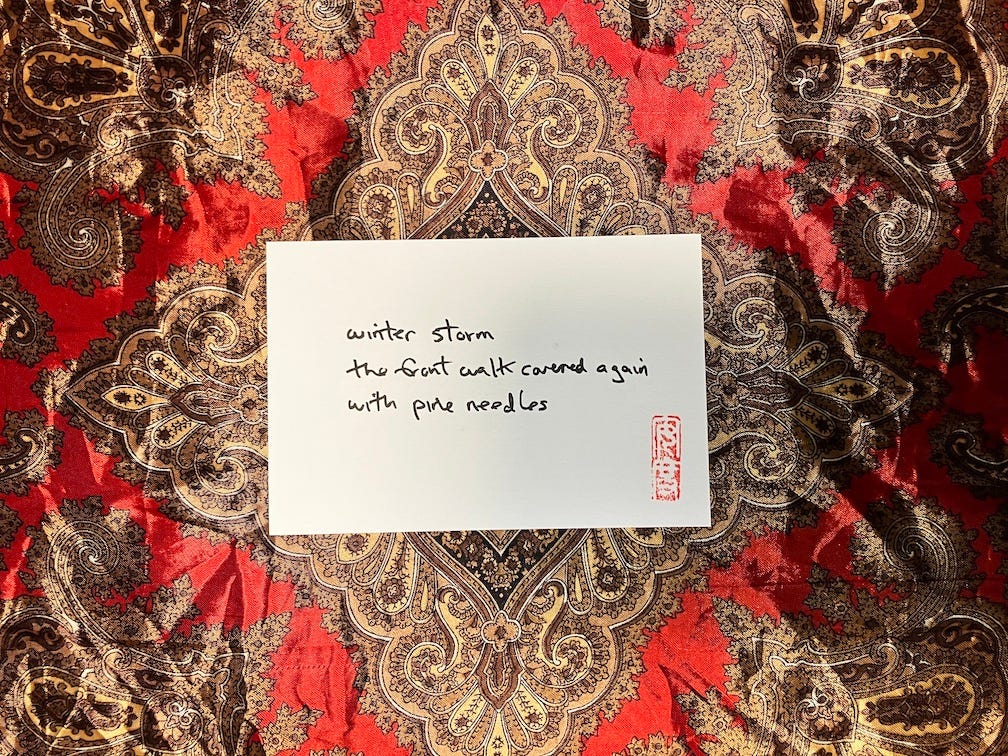 winter storm
the front walk covered again
with pine needles